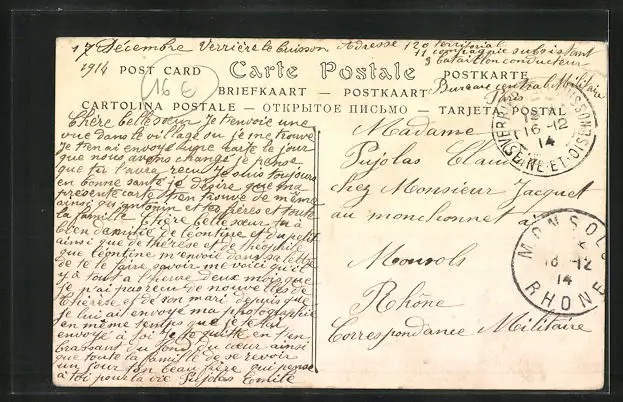 17 Décembre Verrière le buisson Adresse 120 territorial
11 compagnie subsistant
3 bataillon conducteur
1914 POST CARD Carte Postale POSTKARTE
16 E
BRIEFKAART — POSTKAART
Bureau central Militaire
Paris
CARTOLINA POSTALE – ОТКРЫТОЕ ПИСЬМО – TARJETA POSTAL
Chère belle sœur Je t'envoie une
vue dans le village ou je me trouve
Je t'en ai envoyé une carte le jour
que nous avons changé je pense
que tu l'aura reçu Je suis toujours
en bonne santé je désire que ma
présente carte t'en trouve de même
ainsi qu'antonin et tes frères et toute
la famille Chère belle sœur tu a
bien de la de léontine et du petit
ainsi que de thérèse et de théophile
que léontine m'envoie dans sa lettre
de te le faire savoir me voici qu'il
y a tout a l'heure deux mois que
je n'ai pas reçu de nouvelles de
thérèse et de son mari depuis que
je lui ait envoyé ma photographie
en même temps que je t'ai
envoyé à toi Je te quitte en t'em
brassant du fond du cœur ainsi
que toute la famille de se revoir
un jour ton beau frère qui pense
à toi pour la vie Pujolas Emile
Madame
Pujolas
chez Monsieur Jacquet
au monchonnet
Monsols
Rhône
Correspondance Militaire
16-12
14
SEINE-ET-OISE
MONSOLS
18-12
14
RHONE